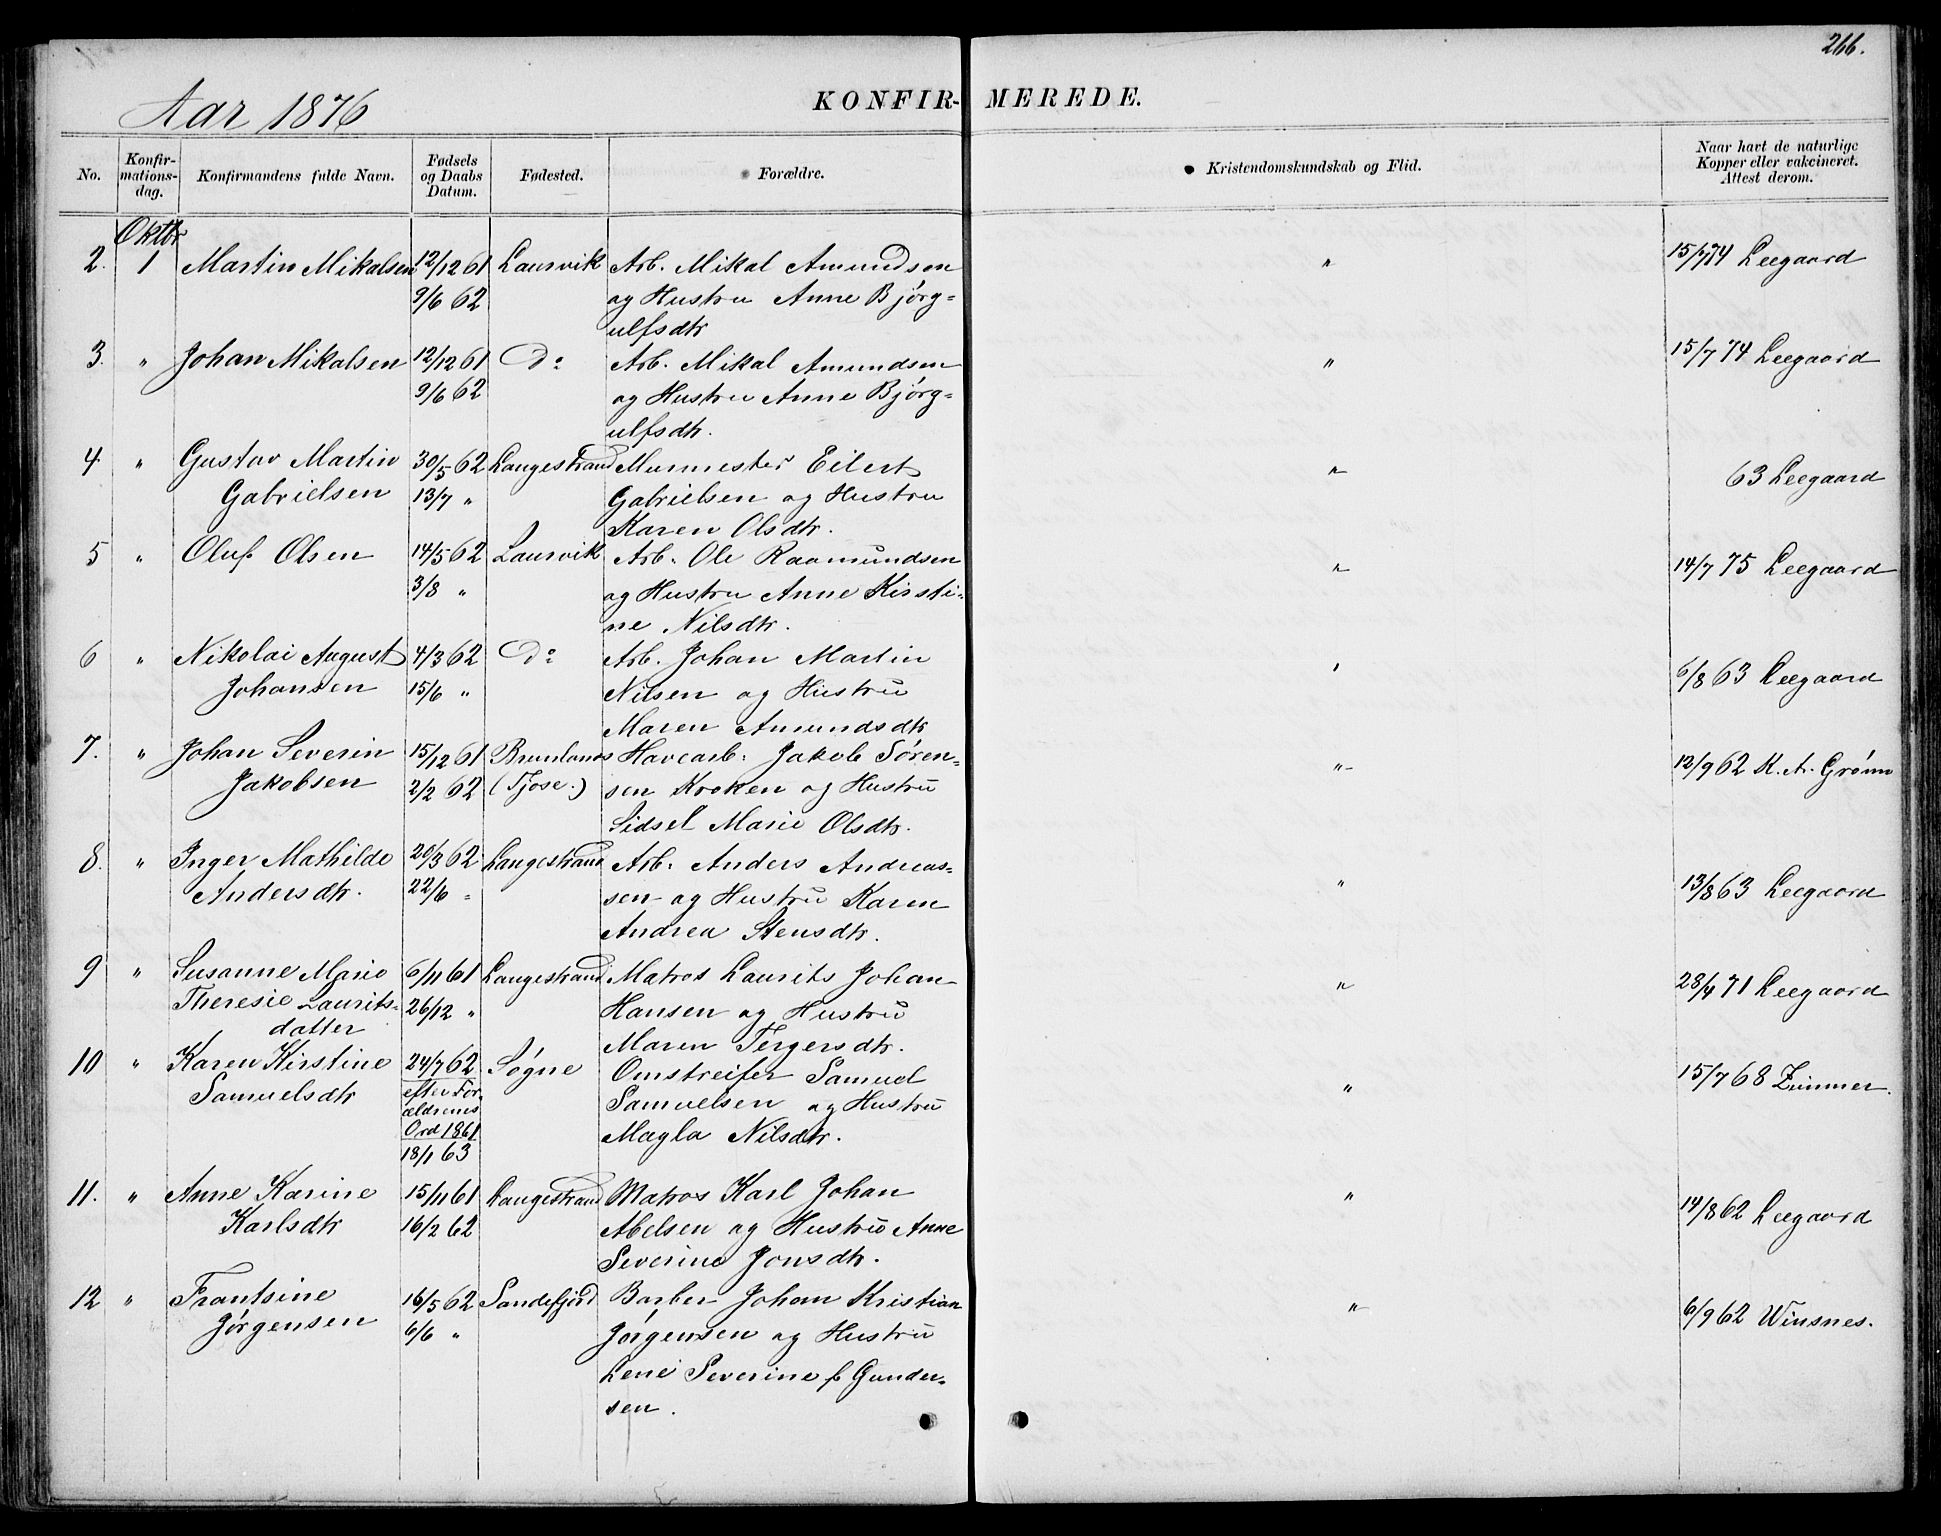 266.
Aar 1876
KONFIR- MEREDE.
No.
Konfir-
mations-
dag.
Konfirmandens fulde Navn.
Fødsels
og Daabs
Datum.
Fødested.
Forældre.
Kristendomskundskab og Flid.
Naar havt de naturlige
Kopper eller vakcineret.
Attest derom.
Oktbr
2. 1 Martin Mikalsen 12/12 61 Laurvik Arb. Mikal Amundsen " 15/7 74 Leegaard
9/6 62 og Hustru Anne Bjørg=
ulfsdtr
3. " Johan Mikalsen 12/12 61 Do Arb. Mikal Amundsen " 15/7 74 Leegaard
9/6 62 og Hustru Anne Bjørg=
ulfsdtr.
4. " Gustav Martin 30/5 62 Langestrand Murmester Eilert " 63 Leegaard
Gabrielsen 13/7 " Gabrielsen og Hustru
Karen Olsdtr.
5 " Oluf Olsen 14/5 62 Laurvik Arb. Ole Raamundsen " 14/7 75 Leegaard
3/8 " og Hustru Anne Kirsti=
ne Nilsdtr.
6 " Nikolai August 4/3 62 Do Arb. Johan Martin " 6/8 63 Leegaard
Johansen 15/6 " Nilsen og Hustru
Maren Amundsdtr
7. " Johan Severin 15/12 61 Brunlanes Havearb. Jakob Søren= " 12/9 62 K. A. Grønn
Jakobsen 2/2 62 (Tjose.) sen Kroken og Hustru
Sidsel Marie Olsdtr.
8. " Inger Mathilde 20/3 62 Langestrand Arb. Anders Andreas= " 13/8 63 Leegaard
Andersdtr. 22/6 " sen og Hustru Karen
Andrea Stensdtr.
9 " Susanne Marie 6/11 61 Langestrand Matros Laurits Johan " 28/4 71 Leegaard
Theresie Laurits= 26/12 " Hansen og Hustru
datter Maren Tergersdtr.
10 " Karen Kirstine 24/7 62 Søgne Omstreifer Samuel " 15/7 68 Zimmer.
Samuelsdtr efter For- Samuelsen og Hustru
ældrenes
Ord 1861 Magla Nilsdtr.
18/1 63
11. " Anne Karine 15/11 61 Langestrand Matros Karl Johan " 14/8 62 Leegaard
Karlsdtr 16/2 62 Abelsen og Hustru Anne
Severine Jonsdtr.
12 " Frantsine 16/5 62 Sandefjord Barber Johan Kristian " 6/9 62 Winsnes.
Jørgensen 6/6 " Jørgensen og Hustru
Lene Severine f. Gunder=
sen.